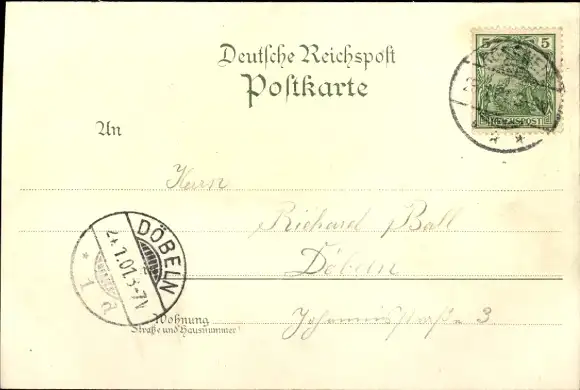 Deutsche Reichspost
Postkarte
5 5
REICHSPOST
An
Herrn
Richard Ball
Döbeln
DÖBELN
24.1.01.3-7N
Wohnung
Straße und Hausnummer
Johannisstraße 3